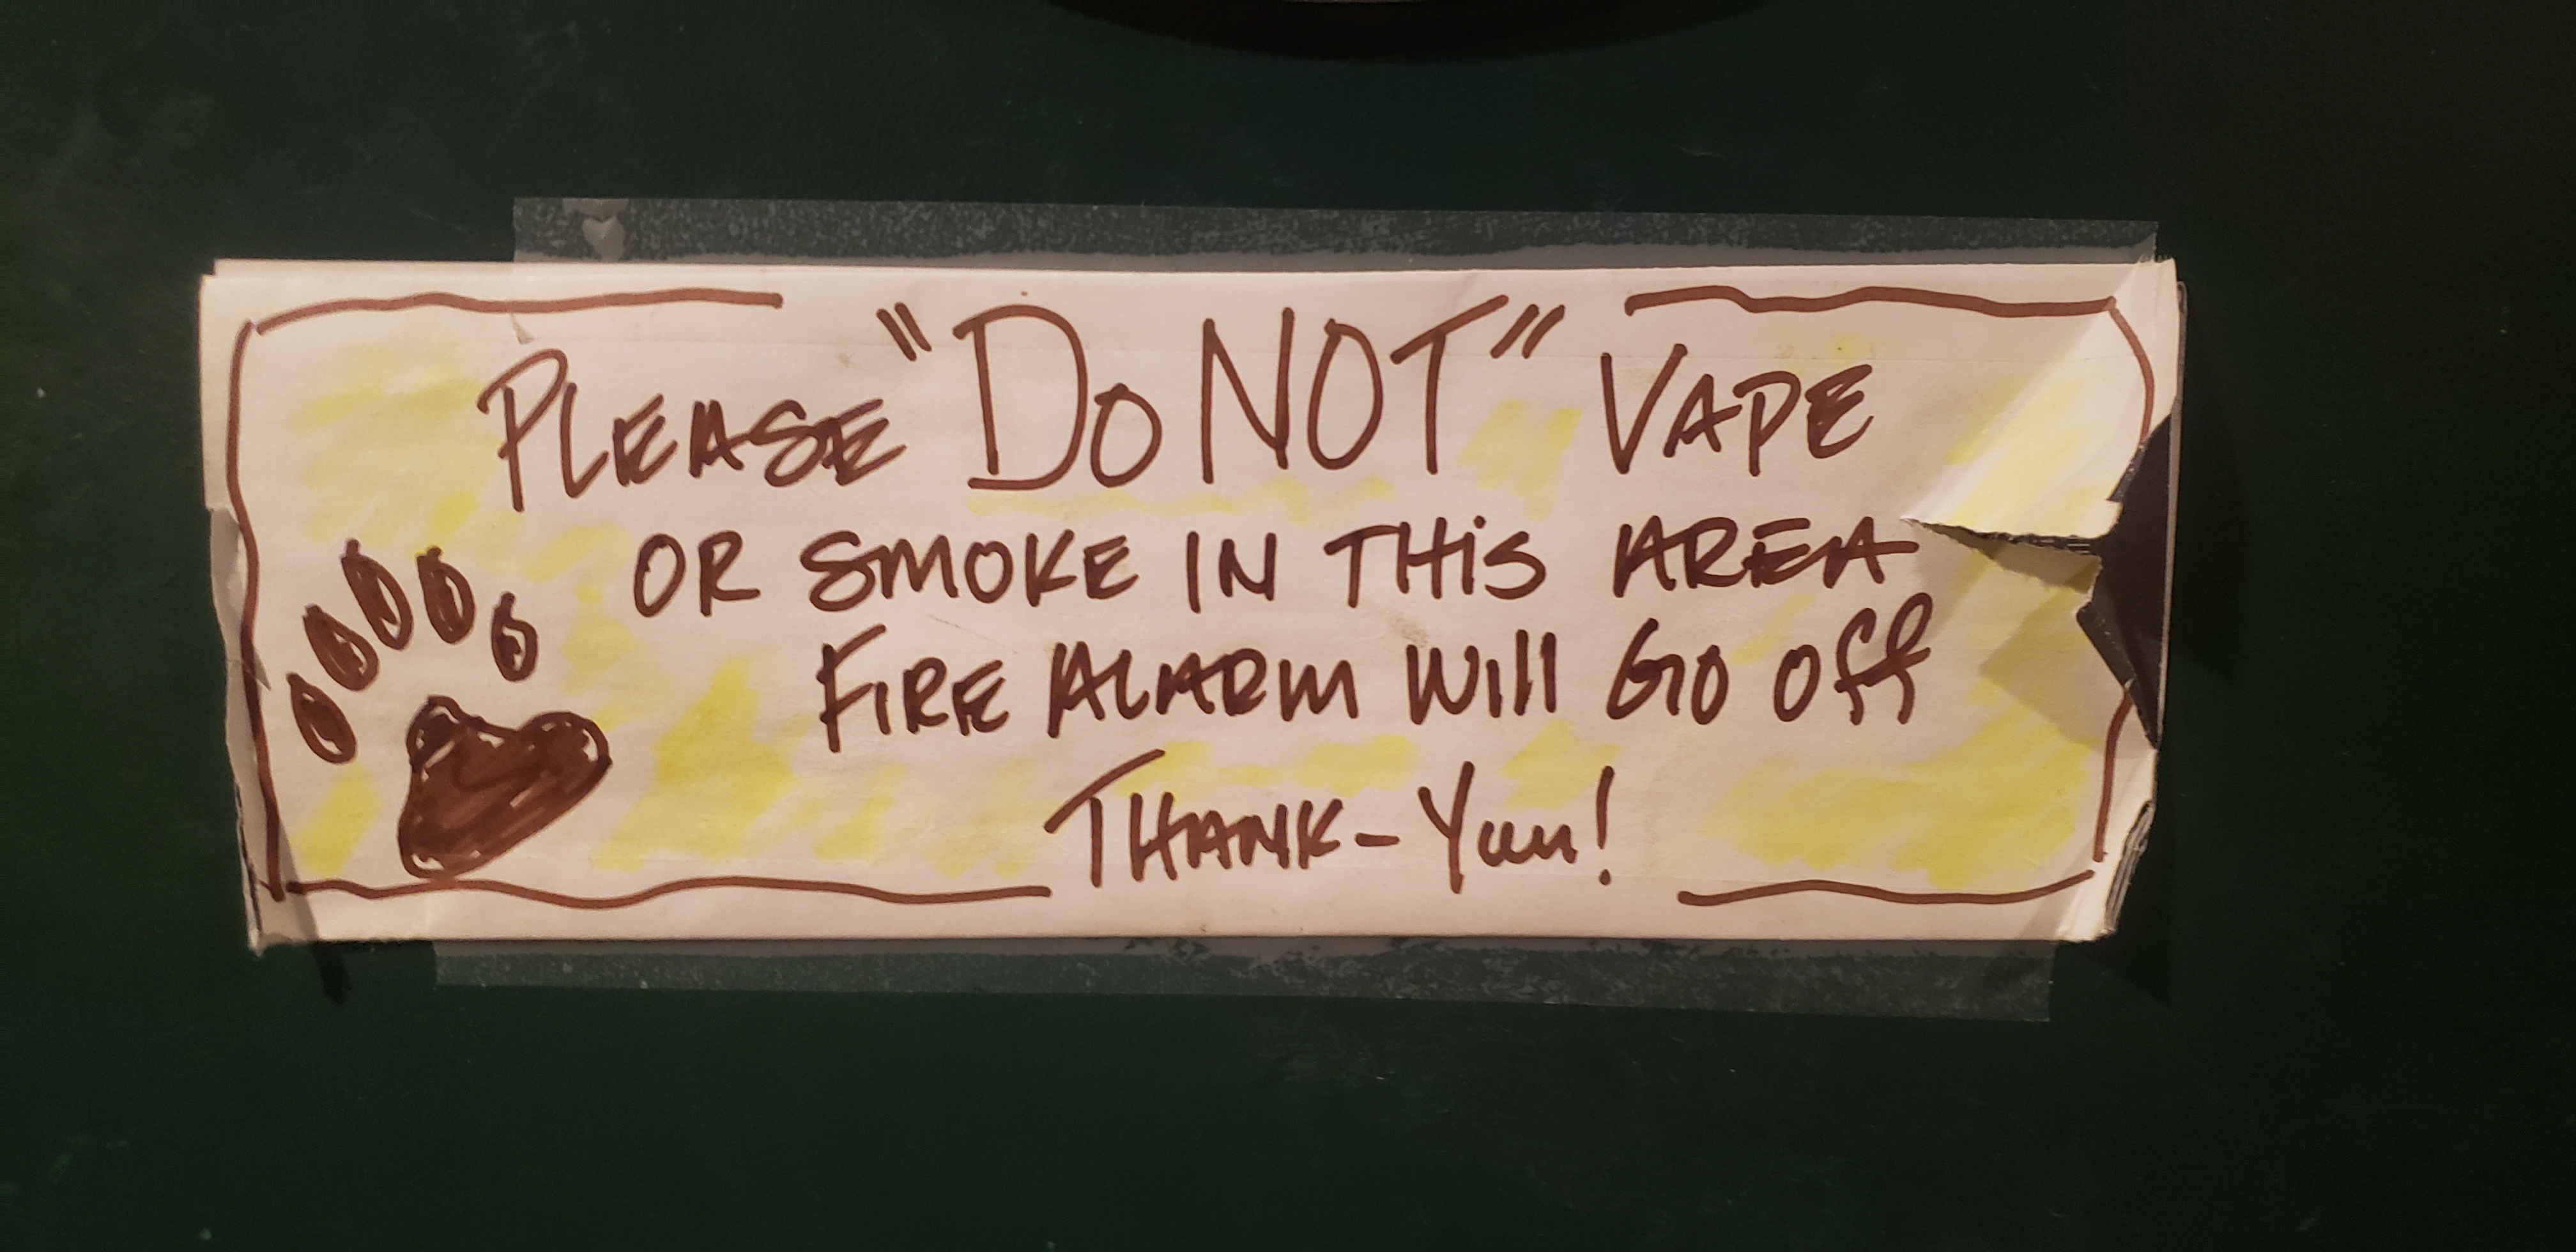 PLEASE "Do NOT" VAPE
OR SMOKE IN THiS AREA
FIRE ALARM Will GO Off
THANK-You!